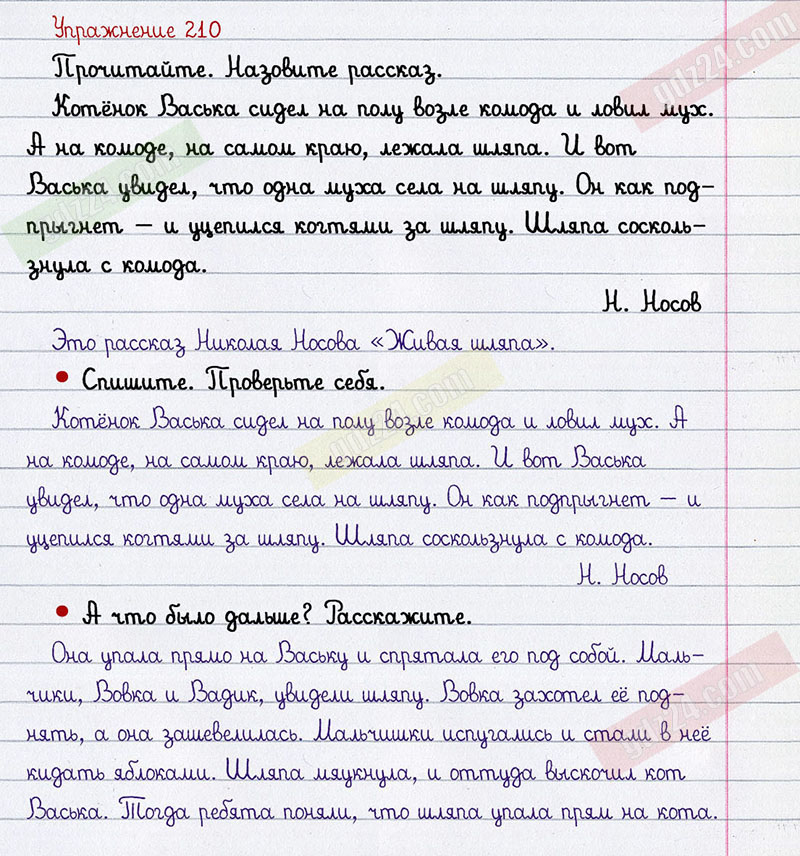 Упражнение 210
Прочитайте. Назовите рассказ.
Котёнок Васька сидел на полу возле комода и ловил мух.
А на комоде, на самом краю, лежала шляпа. И вот
Васька увидел, что одна муха села на шляпу. Он как под-
прыгнет — и уцепился когтями за шляпу. Шляпа сосколь-
знула с комода.
Н. Носов
Это рассказ Николая Носова «Живая шляпа».
• Спишите. Проверьте себя.
Котёнок Васька сидел на полу возле комода и ловил мух. А
на комоде, на самом краю, лежала шляпа. И вот Васька
увидел, что одна муха села на шляпу. Он как подпрыгнет — и
уцепился когтями за шляпу. Шляпа соскользнула с комода.
Н. Носов
• А что было дальше? Расскажите.
Она упала прямо на Ваську и спрятала его под собой. Маль-
чики, Вовка и Вадик, увидели шляпу. Вовка захотел её под-
нять, а она зашевелилась. Мальчишки испугались и стали в неё
кидать яблоками. Шляпа мяукнула, и оттуда выскочил кот
Васька. Тогда ребята поняли, что шляпа упала прям на кота.
gdz24.com
gdz24.com
gdz24.com
gdz24.com